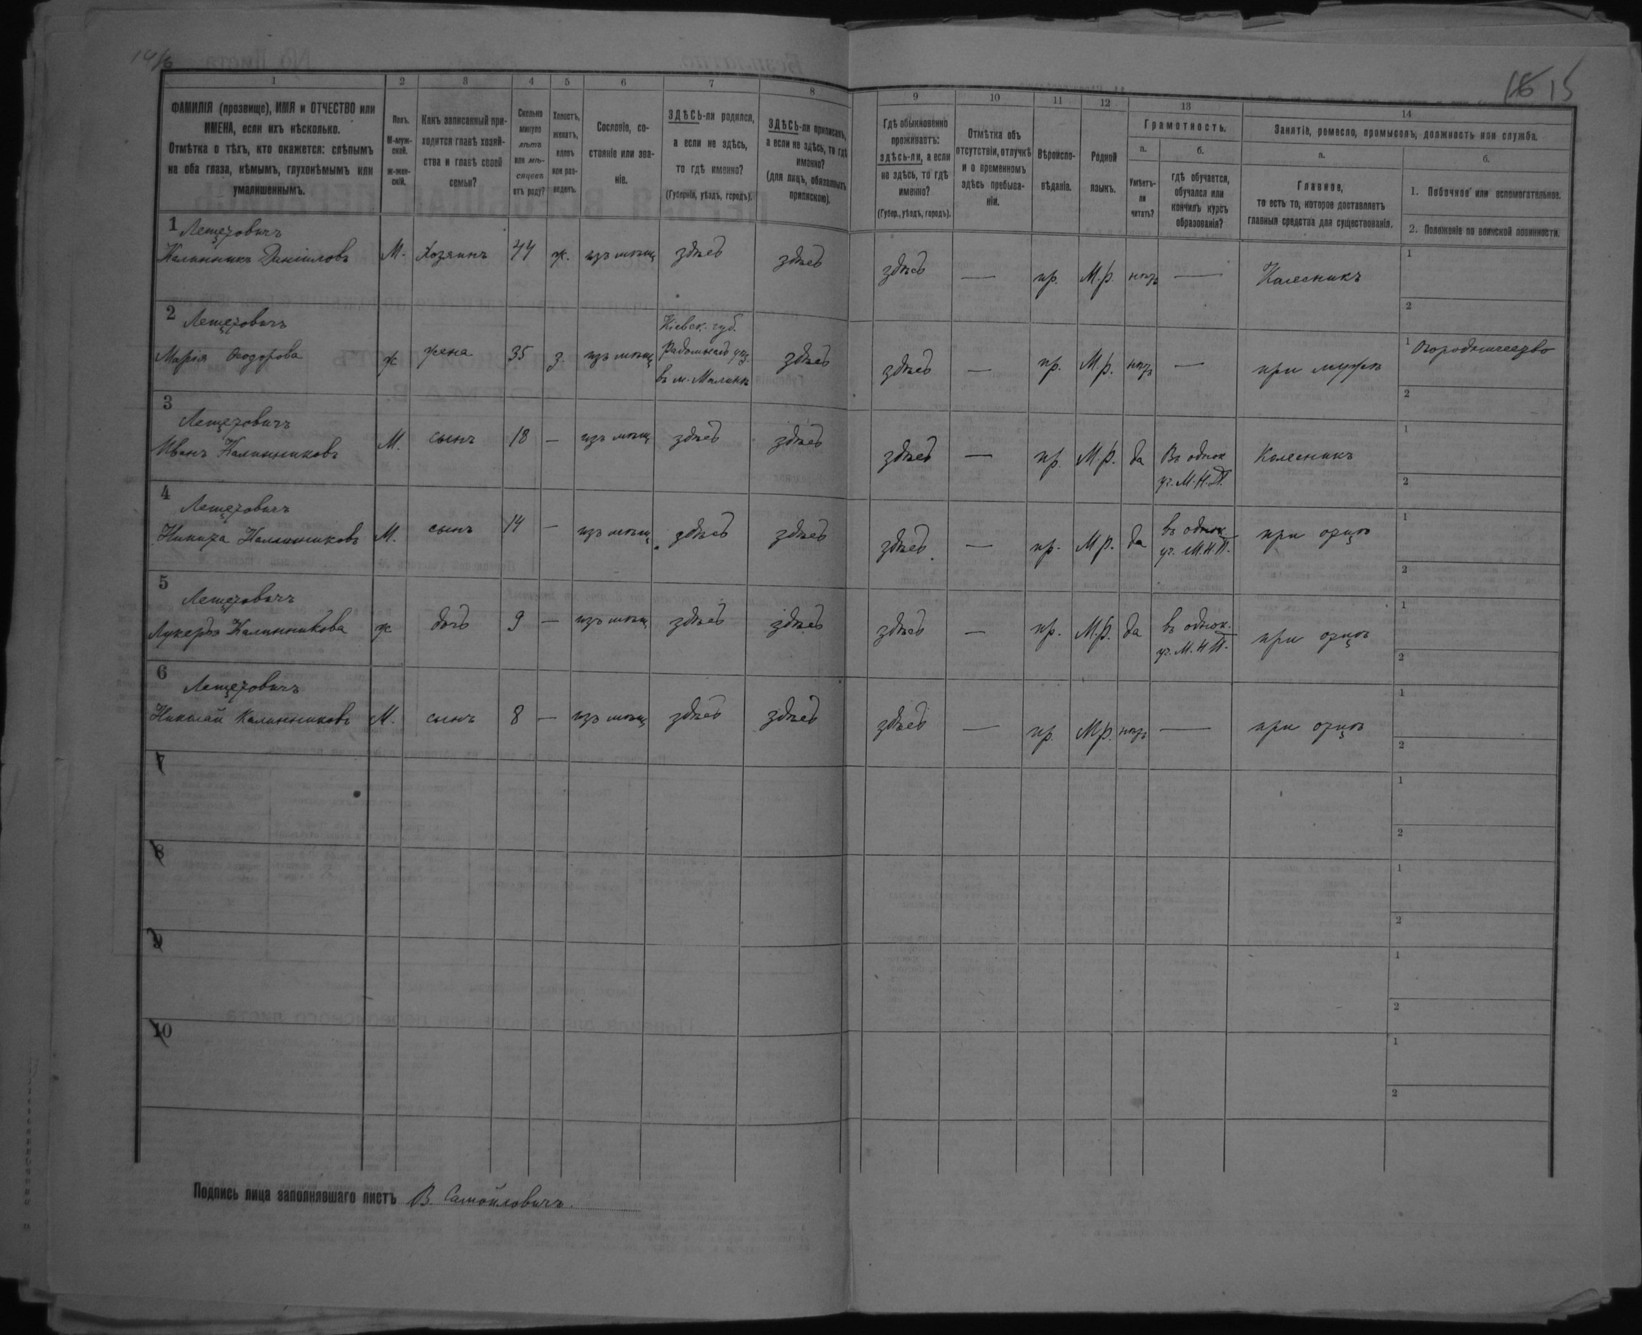 14/6
15
1 2 3 4 5 6 7 8 9 10 11 12 13 14
ФАМИЛІЯ (прозвище), ИМЯ и ОТЧЕСТВО или
ИМЕНА, если ихъ нѣсколько.
Отмѣтка о тѣхъ, кто окажется: слѣпымъ
на оба глаза, нѣмымъ, глухонѣмымъ или
умалишеннымъ.
Полъ.
М-муж-
ской.
Ж-жен-
скій.
Какъ записанный при-
ходится главѣ хозяй-
ства и главѣ своей
семьи?
Сколько
минуло
лѣтъ
или мѣ-
сяцевъ
отъ роду?
Холостъ,
женатъ,
вдовъ
или раз-
веденъ.
Сословіе, со-
стояніе или зва-
ніе.
ЗДѢСЬ-ли родился,
а если не здѣсь,
то гдѣ именно?
(Губернія, уѣздъ, городъ).
ЗДѢСЬ-ли приписанъ,
а если не здѣсь, то гдѣ
именно?
(для лицъ, обязанныхъ
припискою).
Гдѣ обыкновенно
проживаетъ:
здѣсь-ли, а если
не здѣсь, то гдѣ
именно?
(Губер., уѣздъ, городъ).
Отмѣтка объ
отсутствіи, отлучкѣ
и о временномъ
здѣсь пребыва-
ніи.
Вѣроиспо-
вѣданіе.
Родной
языкъ.
Грамотность.
а.
Умѣетъ-
ли
читать?
б.
гдѣ обучается,
обучался или
кончилъ курсъ
образованія?
Занятіе, ремесло, промыселъ, должность или служба.
а.
Главное,
то есть то, которое доставляетъ
главныя средства для существованія.
б.
1. Побочное или вспомогательное.
2. Положеніе по воинской повинности.
1 Лещровичъ
Калинникъ Даніиловъ М. Хозяинъ 44 ж. изъ мѣщ здѣсь здѣсь здѣсь — пр. М.р. нѣтъ — Колесникъ 1
2
2 Лещровичъ Кіевск. губ.
Марія Ѳеодорова ж жена 35 з изъ мѣщ Радомысл уѣз. здѣсь здѣсь — пр. М.р. нѣтъ — при мужѣ 1 Огородничество
въ м. Малинѣ 2
3 Лещровичъ
Иванъ Калинниковъ М. сынъ 18 — изъ мѣщ здѣсь здѣсь здѣсь — пр. М.р. да Въ однок Колесникъ 1
уч. М.Н.П. 2
4 Лещровичъ
Никита Калинниковъ М. сынъ 14 — изъ мѣщ здѣсь здѣсь здѣсь — пр. М.р. да въ однок при отцѣ 1
уч. М.Н.П. 2
5 Лещровичъ
Лукерья Калинникова ж дочь 9 — изъ мѣщ здѣсь здѣсь здѣсь — пр. М.р. да въ однок. при отцѣ 1
уч. М.Н.П. 2
6 Лещровичъ
Николай Калинниковъ М. сынъ 8 — изъ мѣщ здѣсь здѣсь здѣсь — пр. М.р. нѣтъ — при отцѣ 1
2
7 1
2
8 1
2
9 1
2
10 1
2
Подпись лица заполнявшаго листъ В. Самойловичъ.